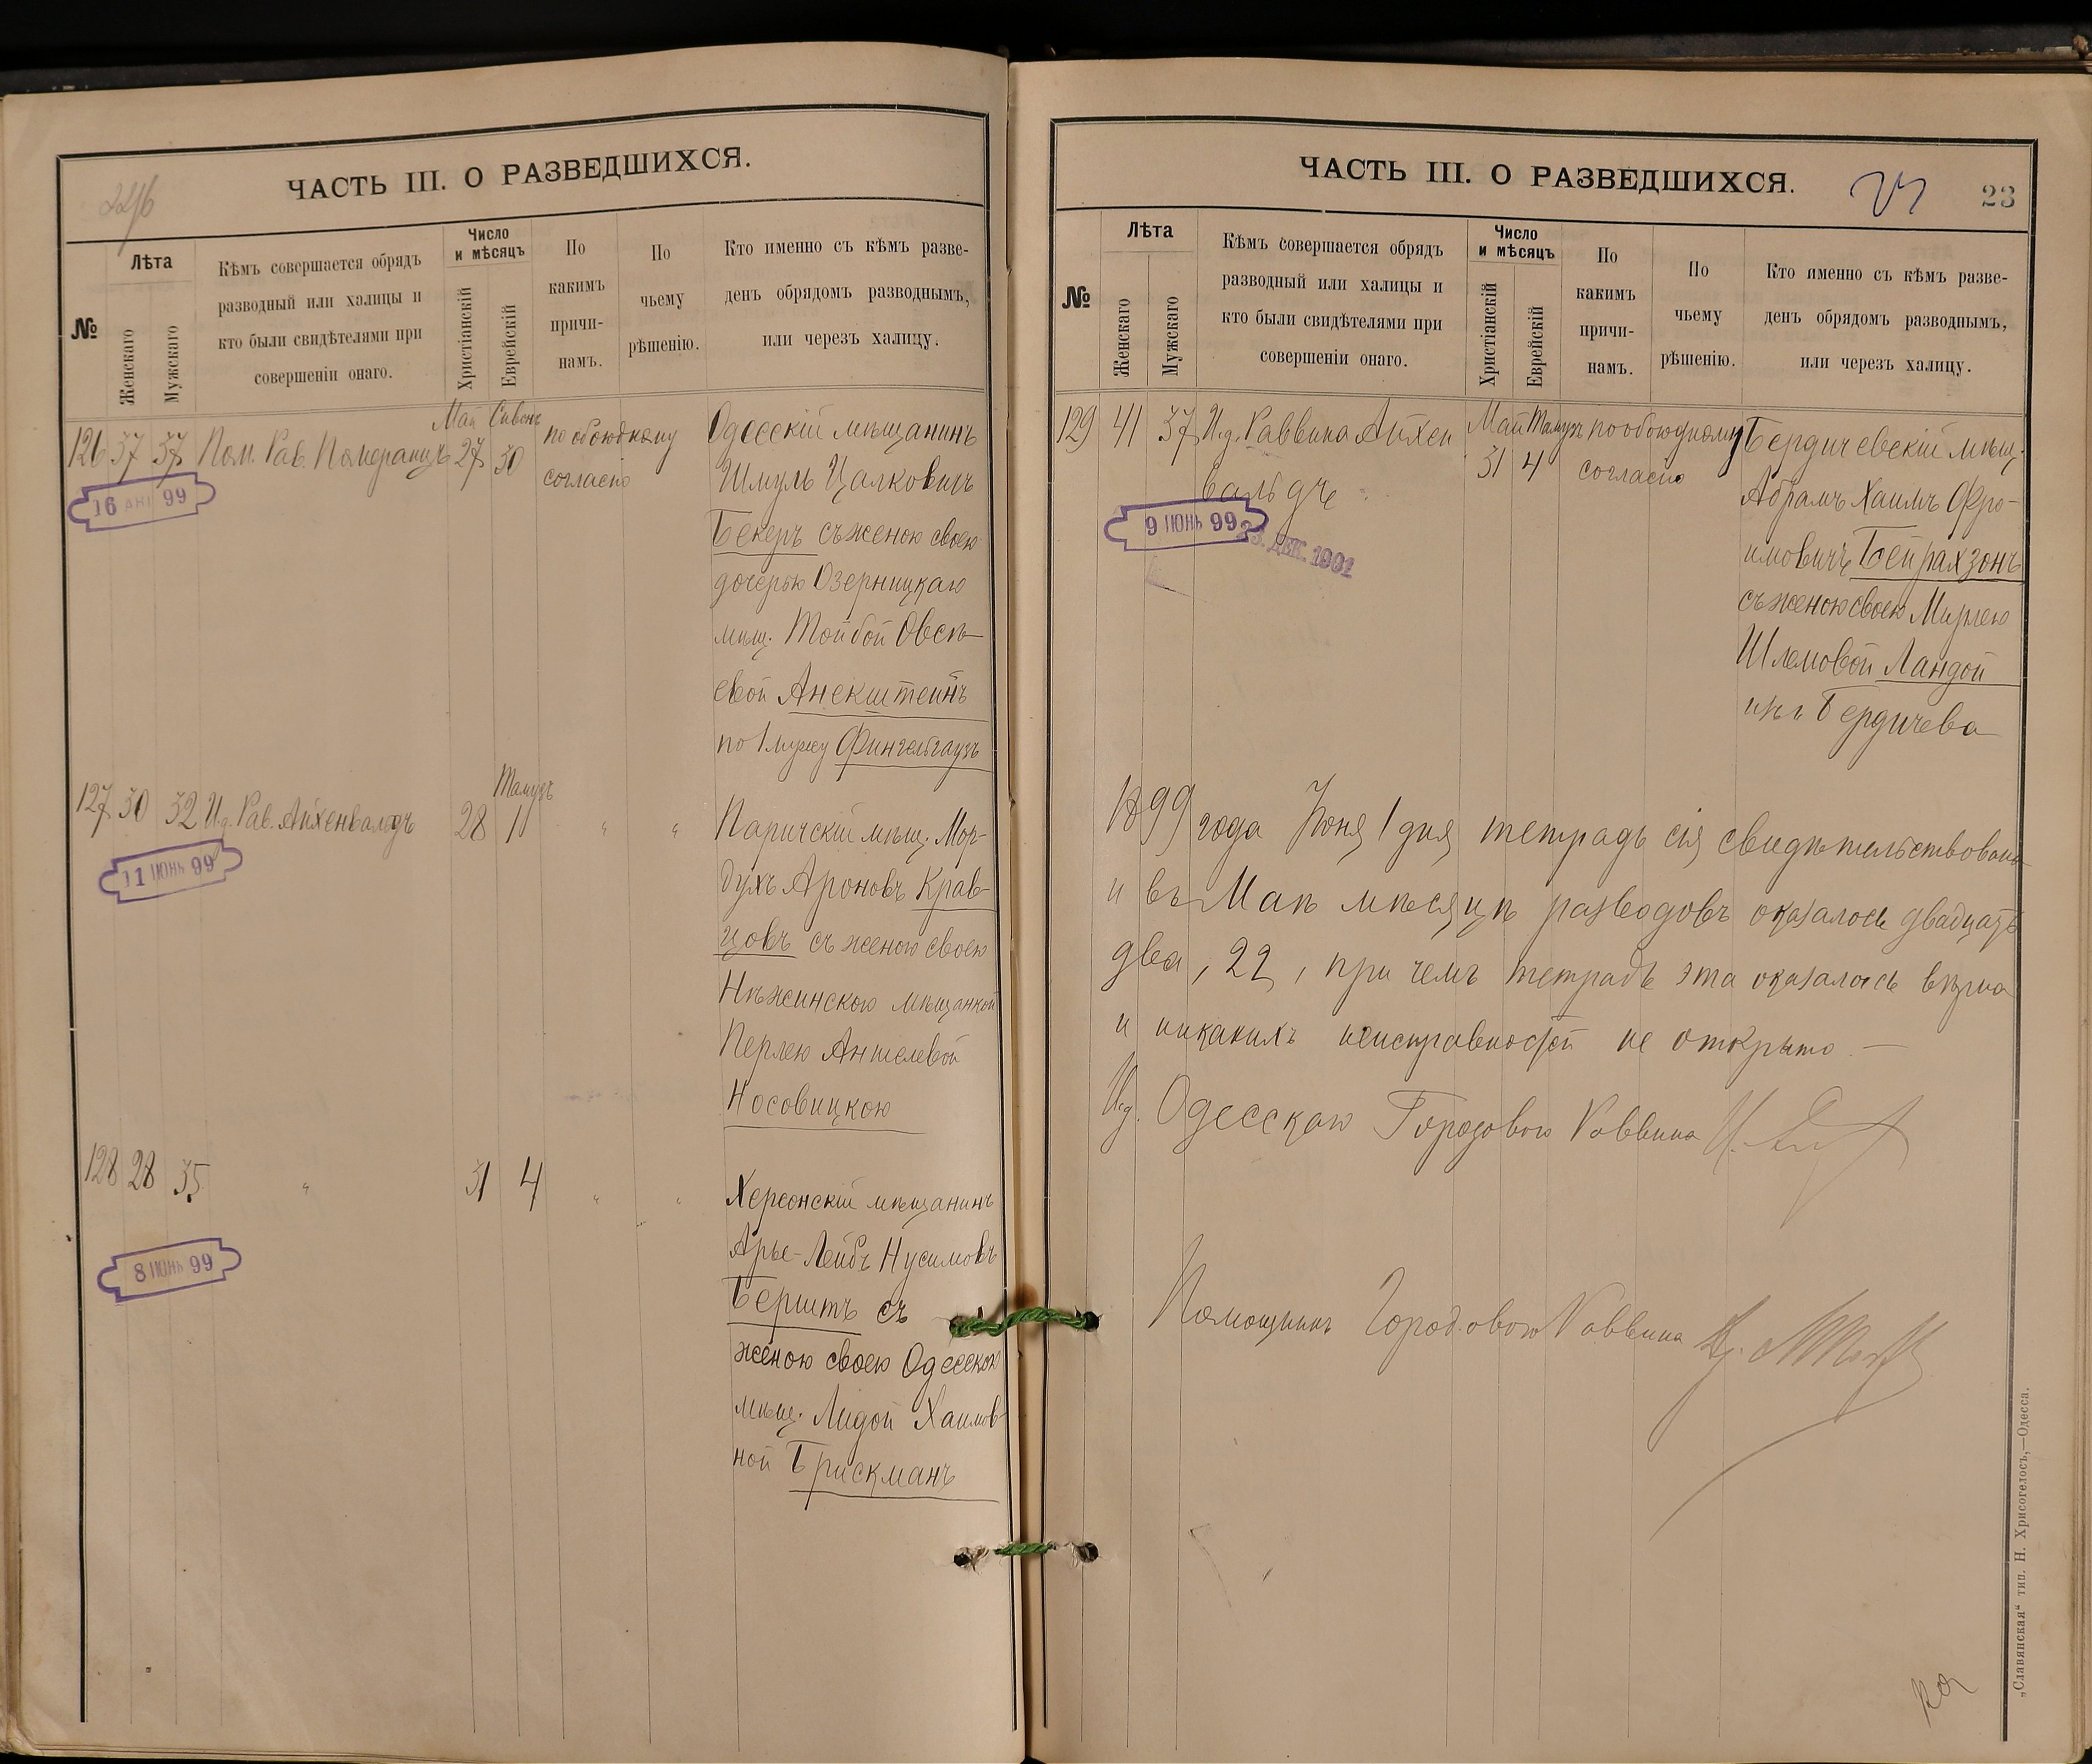 ЧАСТЬ III. О РАЗВЕДШИХСЯ.
№
Лѣта
Женскаго
Мужскаго
Кѣмъ совершается обрядъ
разводный или халицы и
кто были свидѣтелями при
совершеніи онаго.
Число
и мѣсяцъ
Христіанскій
Еврейскій
По
какимъ
причи-
намъ.
По
чьему
рѣшенію.
Кто именно съ кѣмъ разве-
денъ обрядомъ разводнымъ,
или черезъ халицу.
126 37 37 Пом. Рав. Померанцъ
Май 27
Сивонъ 30
по обоюдному
согласію
Одесскій мѣщанинъ
Шмуль Цалковичъ
Бекеръ съ женою своею
дочерью Озерницкаго
мѣщ. Тойбой Овсѣ-
евой Анекштейнъ
по 1 мужу Фингельгаузъ
16 99
127 30 32 И.д. Рав. Айхенвальдъ
28
Тамузъ 1
" "
Паричскій мѣщ. Мор-
духъ Ароновъ Крав-
цовъ съ женою своею
Нѣжинскою мѣщанкой
Перлею Аншелевой
Носовицкою
11 ІЮНЬ 99
128 28 35 " 31 4 " "
Херсонскій мѣщанинъ
Арье-Лейбъ Нусимовъ
Берштъ съ
женою своею Одесскою
мѣщ. Лидой Хаимов-
ной Брискманъ
8 ІЮНЬ 99
ЧАСТЬ III. О РАЗВЕДШИХСЯ.
23
№
Лѣта
Женскаго
Мужскаго
Кѣмъ совершается обрядъ
разводный или халицы и
кто были свидѣтелями при
совершеніи онаго.
Число
и мѣсяцъ
Христіанскій
Еврейскій
По
какимъ
причи-
намъ.
По
чьему
рѣшенію.
Кто именно съ кѣмъ разве-
денъ обрядомъ разводнымъ,
или черезъ халицу.
129 41 37 И.д. Раввина Айхен
вальдъ
Май 31
Тамузъ 4
по обоюдному
согласію
Бердичевскій мѣщ.
Абрамъ Хаимъ Фро-
имовичъ Бейрахзонъ
съ женою своею Мирлею
Шлемовой Ландой
изъ Бердичева
9 ІЮНЬ 99
23. ДЕК. 1901
1899 года Іюня 1 дня тетрадь сія свидѣтельствована
и въ Маѣ мѣсяцѣ разводовъ оказалось двадцать
два, 22, при чемъ тетрадь эта оказалась вѣрна
и никакихъ неисправностей не открыто. —
И.д. Одесскаго Городового Раввина
Помощникъ Городового Раввина
„Славянская“ тип. Н. Хрисогелосъ,—Одесса.